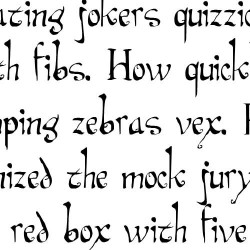 ating jokers quizzic
th fibs. How quick
ping zebras vex.
ized the mock jury
red box with five